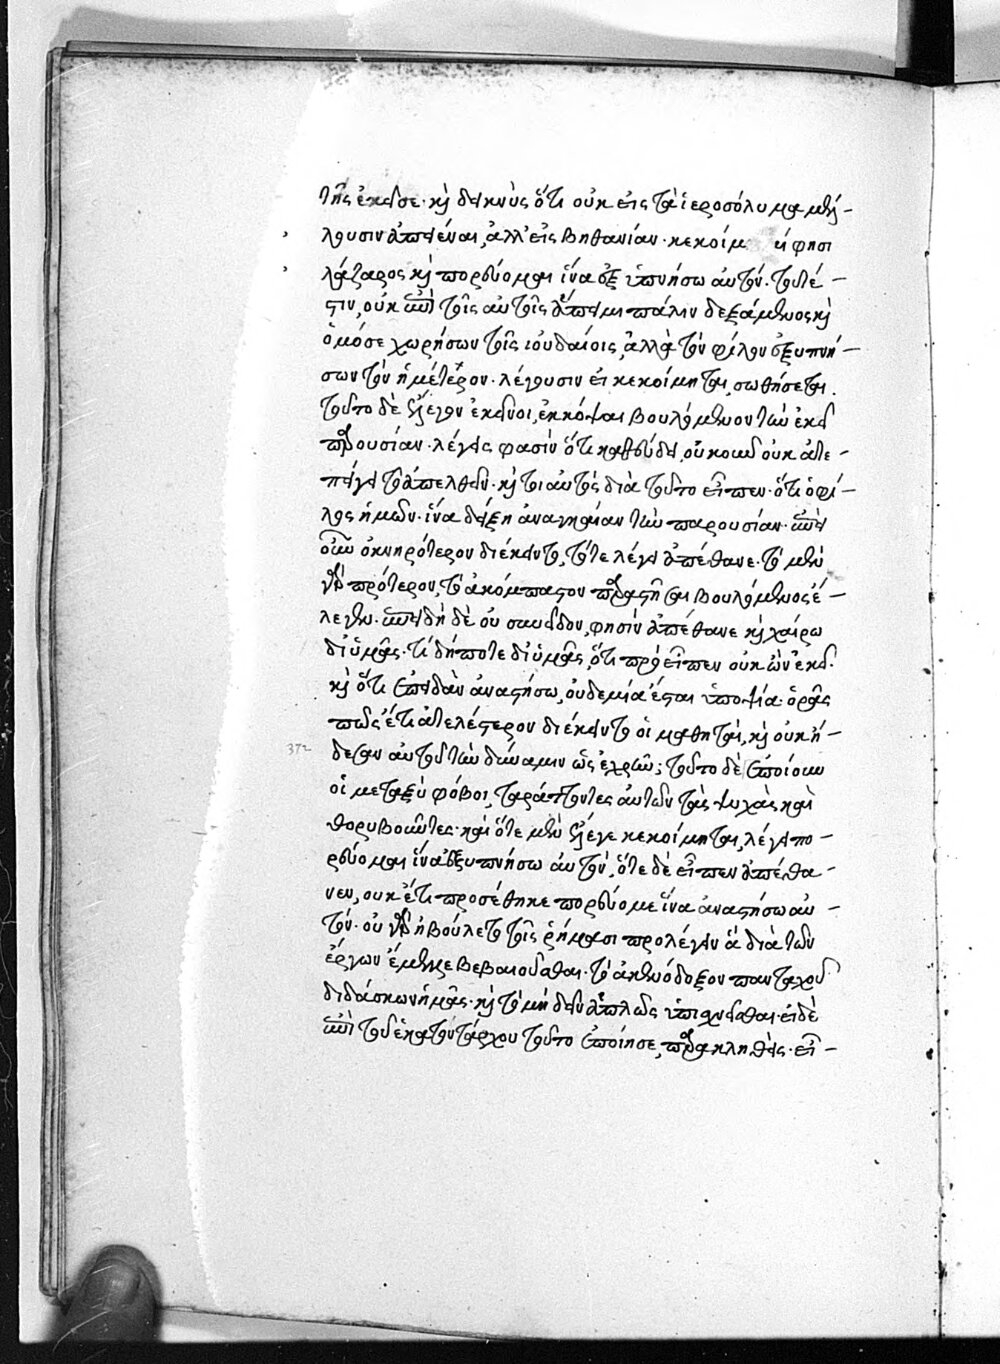 της ἐκεῖσε· καὶ δεικνὺς ὅτι οὐκ εἰς τὰ ἱεροσόλυμα μέλ-
λουσιν ἀπιέναι, ἀλλ' εἰς βηθανίαν· κεκοίμ φησι
λάζαρος καὶ πορεύομαι ἵνα ἐξυπνήσω αὐτόν· τουτέ-
στιν, οὐκ ἐπὶ τοῖς αὐτοῖς ἄπειμι πάλιν δεξάμενος καὶ
ὁμόσε χωρήσων τοῖς ἰουδαίοις, ἀλλὰ τὸν φίλον ἐξυπνή-
σων τὸν ἡμέτερον· λέγουσιν εἰ κεκοίμηται, σωθήσεται.
τοῦτο δὲ ἔλεγον ἐκεῖνοι, ἐκκόψαι βουλόμενοι τὴν ἐκεῖ
παρουσίαν· λέγεις φασὶν ὅτι καθεύδει, οὐκοῦν οὐκ ἀτε-
πείγει τὸ ἀπελθεῖν· καὶ τοι αὐτὸς διὰ τοῦτο εἶπεν· ὅτι ὁ φί-
λος ἡμῶν· ἵνα δείξη ἀναγκαίαν τὴν παρουσίαν· ἐπεὶ
οὖν ὀκνηρότερον διέκειντο, τότε λέγει ἀπέθανε· τὸ μὲν
γὰρ πρότερον, τὸ ἀκόμπαστον παραστῆσαι βουλόμενος ἔ-
λεγεν· ἐπειδὴ δὲ οὐ συνεῖδον, φησὶν ἀπέθανε καὶ χαίρω
δι' ὑμᾶς· τί δήποτε δι' ὑμᾶς, ὅτι προεῖπεν οὐκ ὢν ἐκεῖ·
καὶ ὅτι ἐπειδὰν ἀναστήσω, οὐδεμία ἔσται ὑποψία· ὁρᾶς
πῶς ἔτι ἀτελέστερον διέκειντο οἱ μαθηταὶ, καὶ οὐκ ἤ-
372 δεσαν αὐτοῦ τὴν δύναμιν ὡς ἐχρῆν; τοῦτο δὲ ἐποίουν
οἱ μεταξὺ φόβοι, ταράττοντες αὐτῶν τὰς ψυχὰς καὶ
θορυβοῦντες· καὶ ὅτε μὲν ἔλεγε κεκοίμηται, λέγει πο-
ρεύομαι ἵνα ἐξυπνήσω αὐτόν, ὅτε δὲ εἶπεν ἀπέθα-
νεν, οὐκ ἔτι προσέθηκε πορεύομε ἵνα ἀναστήσω αὐ-
τόν· οὐ γὰρ ἠβούλετο τοῖς ῥήμασι προλέγειν ἃ διὰ τῶν
ἔργων ἔμελλε βεβαιοῦσθαι· τὸ ἀκενόδοξον πανταχοῦ
διδάσκων ἡμᾶς· καὶ τὸ μὴ δεῖν ἁπλῶς ὑπισχνεῖσθαι· εἰ δὲ
ἐπὶ τοῦ ἑκατοντάρχου τοῦτο ἐποίησε, παρακληθεὶς· εἶ-